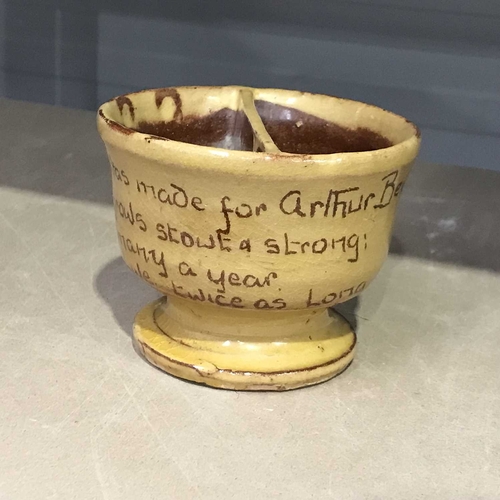 made for Arthur
stout & strong:
many a year
twice as Long